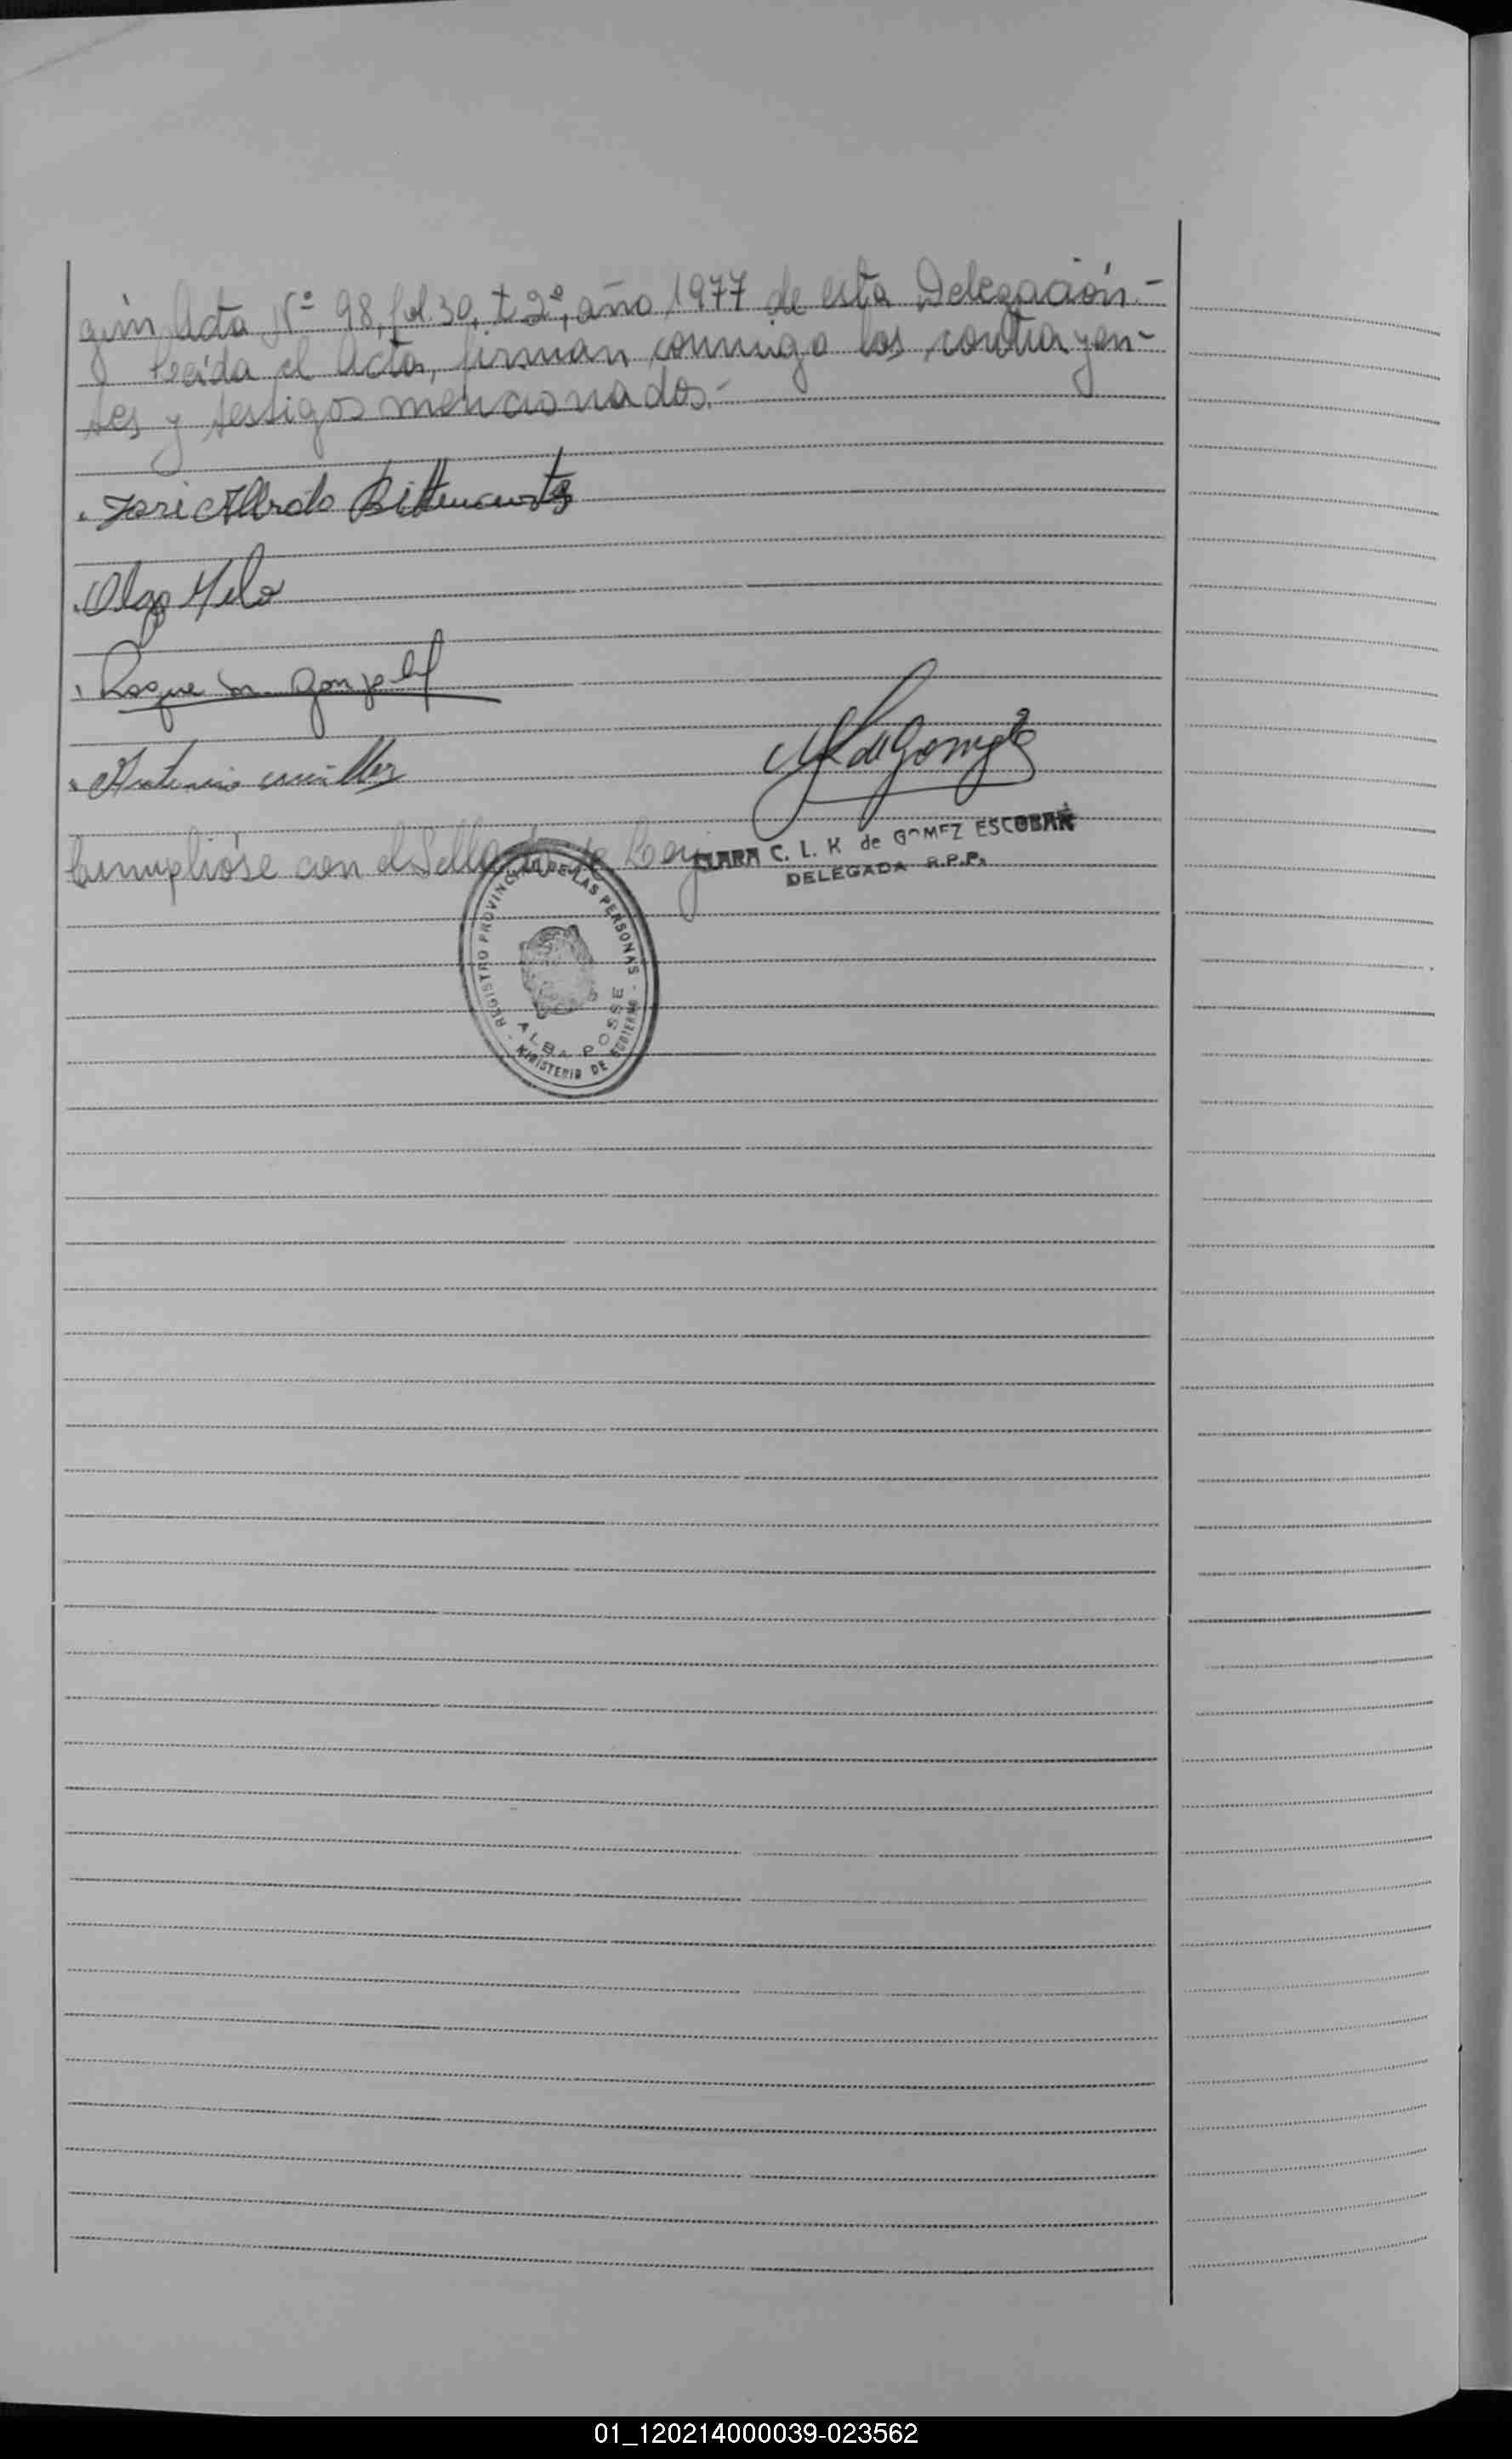 gún Acta Nº 98, fol. 30, t 2º, año 1977 de esta Delegación.-
Leída el Acta, firman conmigo los contrayen-
tes y testigos mencionados.-
José Alfredo Bittencourt
Olga Melo
Roque González
Antonio
de Gomez
Cumplióse con el Sellado de Ley
CLARA C. L. K de GOMEZ ESCOBAR
DELEGADA R.P.P.
REGISTRO PROVINCIAL DE LAS PERSONAS
ALBA POSSE
MINISTERIO DE GOBIERNO
01_120214000039-023562